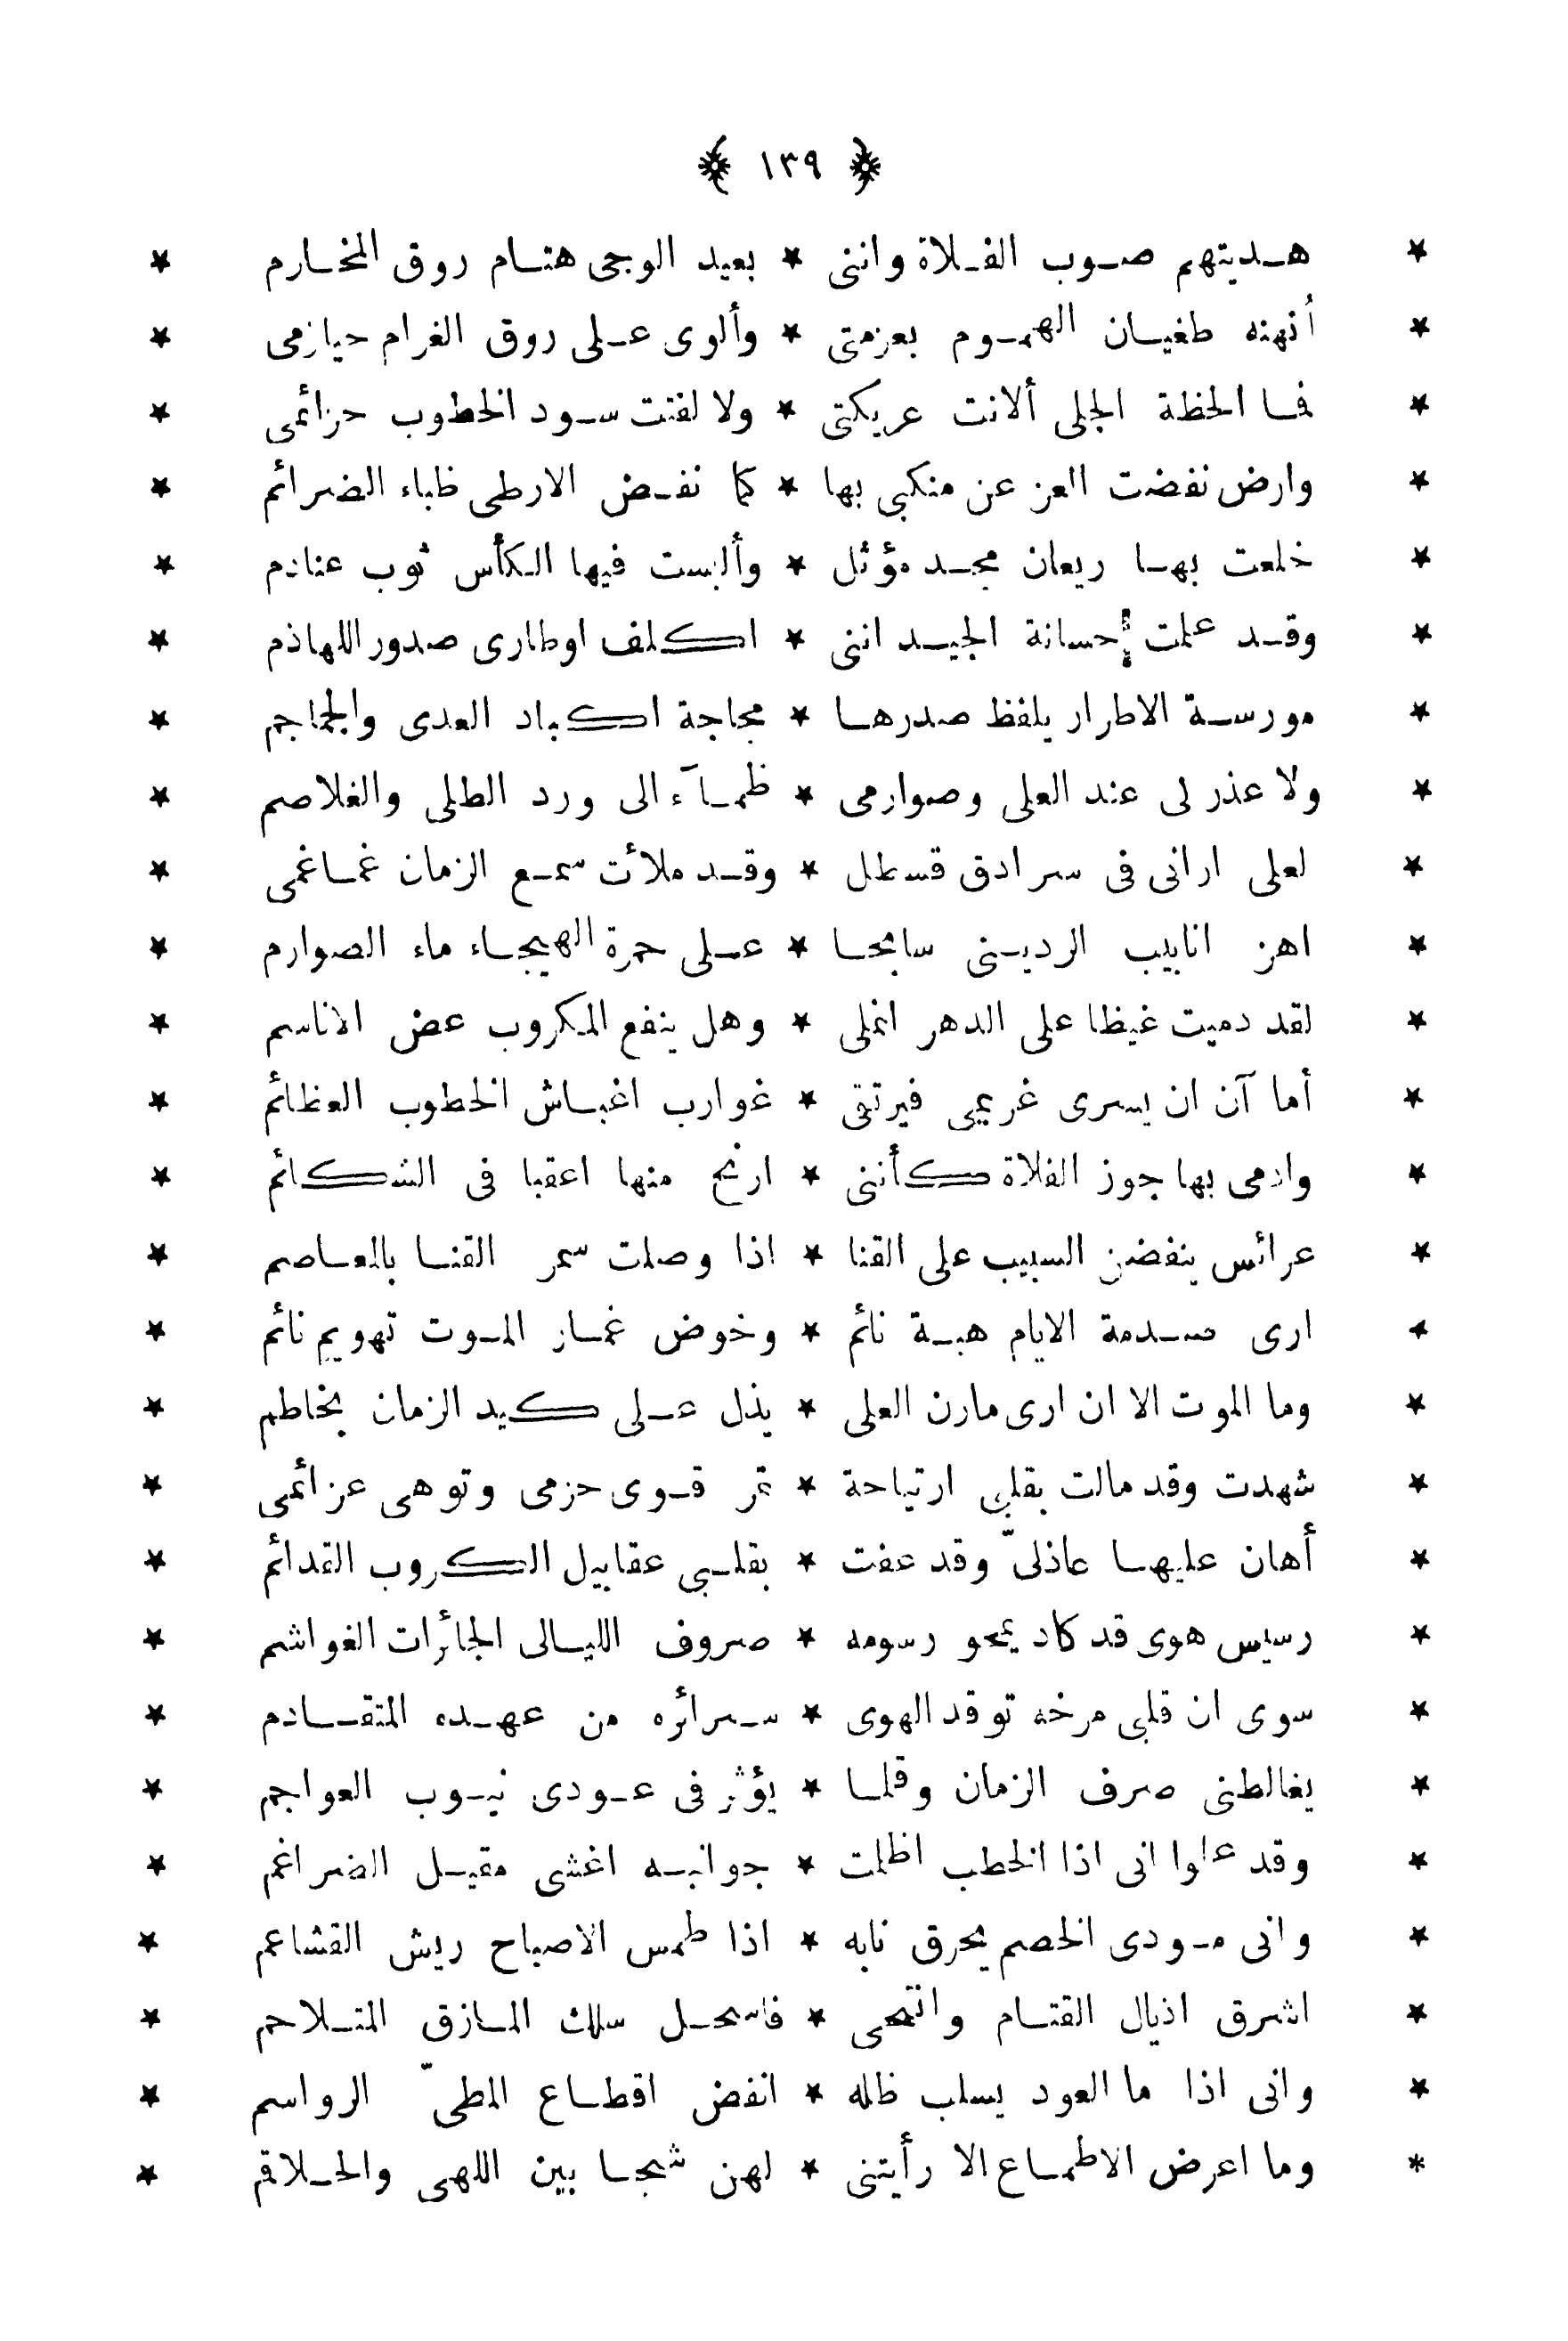 ﴿ ١٣٩ ﴾
* هـديتهم صـوب الفـلاة واننى * بعيد الوجى هتـام روق المخـارم *
* أنهنه طغيـان الهمـوم بعزمتى * وألوى عـلى روق الغرام حيازمى *
* فـا الحظة الجلى ألانت عريكتى * ولا لفتت سـود الخطوب حزائمى *
* وارض نفضت العز عن منكبى بها * كما نفـض الارطى ظباء الضرائم *
* خلعت بهـا ريعان مجـد مؤثل * وألبست فيها الكأس ثوب عنادم *
* وقـد علمت إحسانة الجيـد اننى * اكلف اوطارى صدور اللهاذم *
* مورسـة الاطرار يلفظ صدرهـا * مجاجة اكباد العدى والجماجم *
* ولا عذر لى عند العلى وصوارمى * ظمـآء الى ورد الطلى والغلاصم *
* لعلى ارانى فى سرادق قسطل * وقـد ملأت سمـع الزمان غمـاغمى *
* اهز انابيب الردينى سابحـا * عـلى حمرة الهيجـاء ماء الصوارم *
* لقد دميت غيظا على الدهر انملى * وهل ينفع المكروب عض الاناسم *
* أما آن ان يسرى غريمى فيرتقى * غوارب اغبـاش الخطوب العظائم *
* وارمى بها جوز الفلاة كأننى * ارنح منها اعقبا فى الشكائم *
* عرائس ينفضن السبيب على القنا * اذا وصلت سمر القنـا بالمعـاصم *
* ارى صـدمة الايام هبـة نائم * وخوض غمـار المـوت تهويم نائم *
* وما الموت الا ان ارى مارن العلى * يذل عـلى كيد الزمان بخاطم *
* شهدت وقد مالت بقلبى ارتياحة * تمر قـوى حزمى وتوهى عزائمى *
* أهان عليهـا عاذلىّ وقد عفت * بقلـبى عقابيل الكروب القدائم *
* رسيس هوى قد كاد يمحو رسومه * صروف الليـالى الجائرات الغواشم *
* سوى ان قلبى مرخه توقد الهوى * سـرائره من عهـده المتقـادم *
* يغالطنى صرف الزمان وقلـا * يؤثر فى عـودى نيـوب العواجم *
* وقد علوا انى اذا الخطب اظلمت * جوانبـه اغشى مقيـل الضراغم *
* وانى مـودى الخصم يحرق نابه * اذا طمس الاصباح ريش القشاعم *
* اشرق اذيال القتـام وانتحى * فاسحـل سلك المـازق المتـلاحم *
* وانى اذا ما العود يسلب ظله * انفض اقطـاع المطىّ الرواسم *
* وما اعرض الاطمـاع الا رأيتنى * لهن شجـا بين اللهى والحـلاقم *